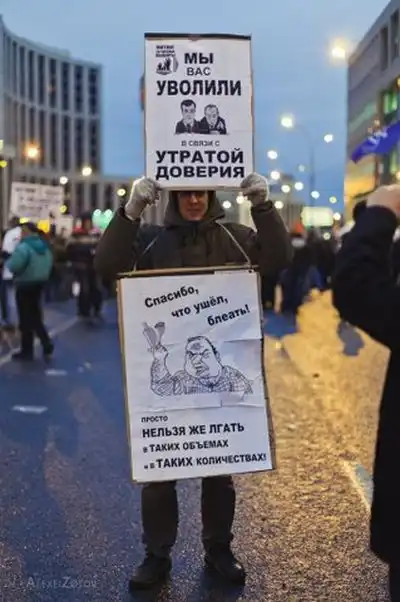 МЫ
ВАС
УВОЛИЛИ
В СВЯЗИ С
УТРАТОЙ
ДОВЕРИЯ
Спасибо,
что ушёл,
блеать!
ПРОСТО
НЕЛЬЗЯ ЖЕ ЛГАТЬ
В ТАКИХ ОБЪЕМАХ
И В ТАКИХ КОЛИЧЕСТВАХ!
ALEXEIZOTOV